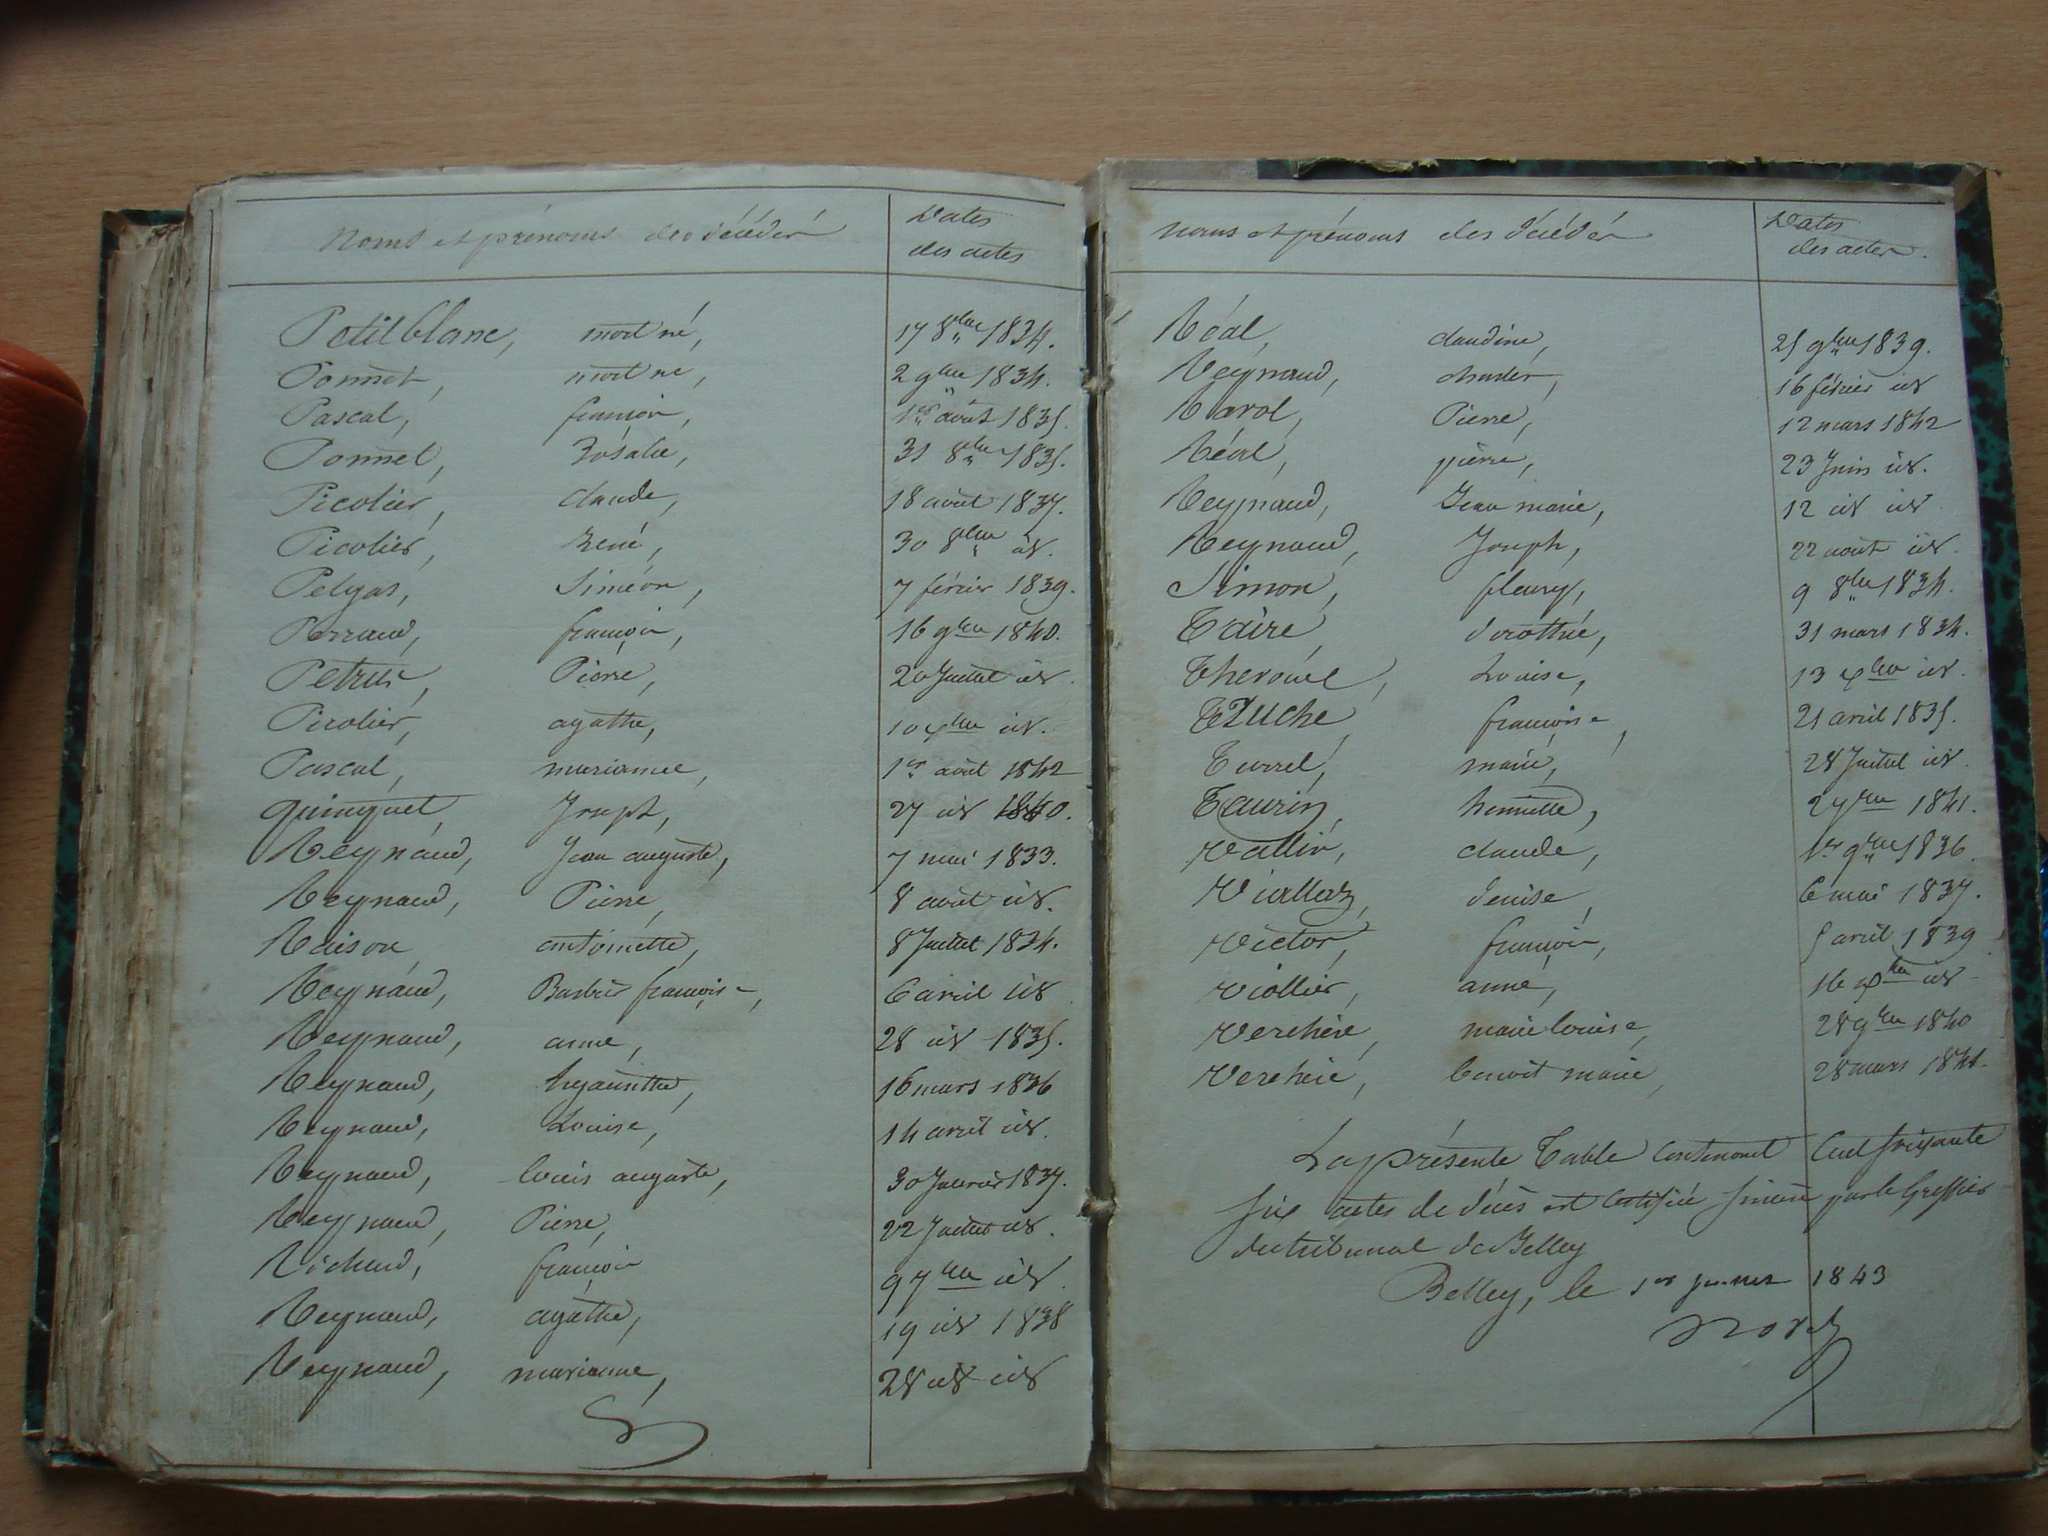 Noms et prénoms des décédés
Dates
des actes
Petitblanc, mort né, 17 8bre 1834.
Ponnet, mort né, 2 9bre 1834.
Pascal, françois, 1er août 1835.
Ponnet, Rosalie, 31 8bre 1835.
Picolier, claude, 18 août 1837.
Picolier, René, 30 8bre id.
Pelgas, Siméon, 7 février 1839.
Perraud, françois, 16 9bre 1840.
Petrus, Pierre, 20 Juillet id.
Picolier, agathe, 10 xbre id.
Pascal, marianne, 1er août 1842
quinquet, Joseph, 27 id 1840.
Reynaud, Jean auguste, 7 mai 1833.
Reynaud, Pierre, 8 août id.
Raison, antoinette, 8 Juillet 1834.
Reynaud, Barbe françoise, 6 avril id
Reynaud, anne, 28 id 1835.
Reynaud, hyacinthe, 16 mars 1836
Reynaud, Louise, 14 avril id.
Reynaud, louis auguste, 30 Janvier 1837.
Reynaud, Pierre, 22 Juillet id.
Richard, françois 9 7bre id.
Reynaud, agathe, 19 id 1838
Reynaud, marianne, 28 id id
Noms et prénoms des décédés
Dates
des actes.
Réal, claudine, 25 9bre 1839.
Reynaud, charles, 16 février id
Ravol, Pierre, 12 mars 1842
Réal, pierre, 23 Juin id.
Reynaud, Jean marie, 12 id id
Reynaud, Joseph, 22 août id.
Simon, fleury, 9 8bre 1834.
Taire, dorothée, 31 mars 1834.
Louise, 13 xbre id.
françoise, 21 avril 1835.
Turrel, marie, 28 Juillet id.
Taurin, henriette, 2 7bre 1841.
Vallin, claude, 1er 9bre 1836.
Viallaz, denise, 6 mai 1837.
Victor, françois, 5 avril 1839
Viollier, anne, 16 xbre id
Verchère, marie louise, 28 9bre 1840
Verchère, benoit marie, 28 mars
La présente Table contenant Cent soixante
six actes de décès est certifiée sincère par le Greffier
du tribunal de Belley
Belley, le 1er janvier 1843